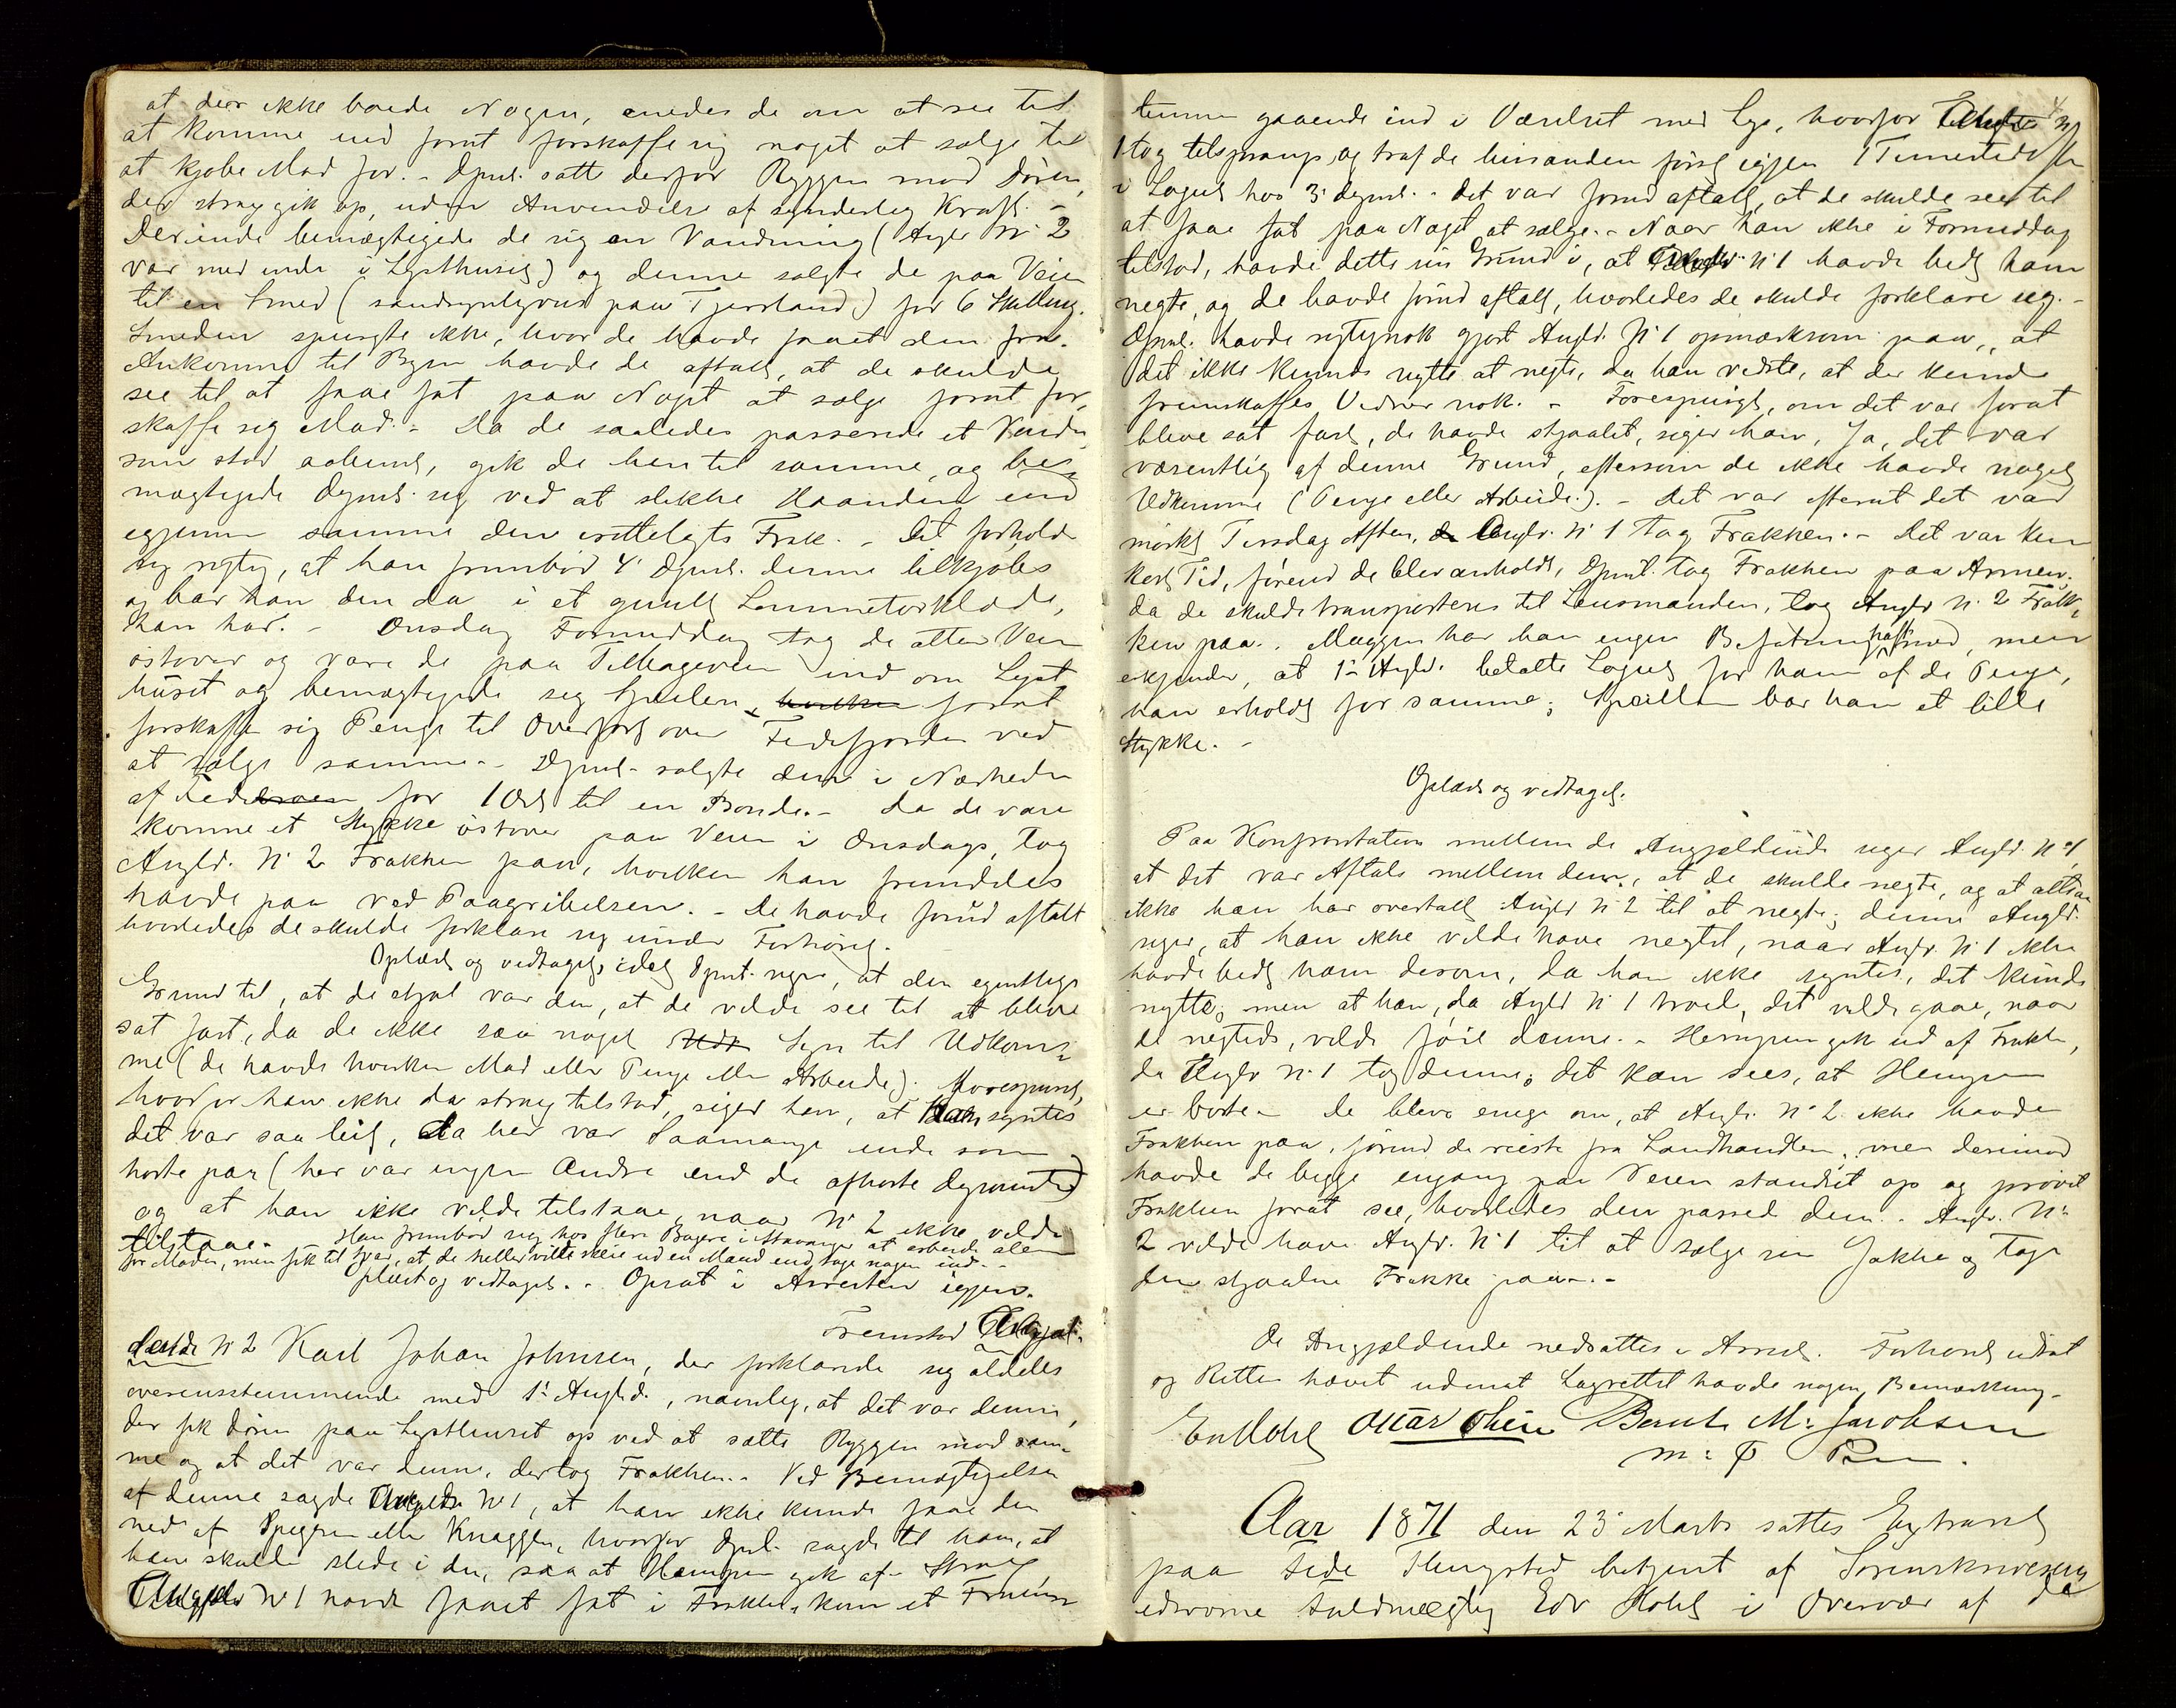 at der ikke boede Nogen, enedes de om at see til
at komme ind forat forskaffe sig noget at sælge til
at kjøbe Mad for. - Dpnt. satte derfor Ryggen mod Døren,
der strax gik op, uden Anvendelse af synderlig Kraft. -
Derinde bemægtigede de sig en Vandring (Angld. No 2
var med inde i Lysthuset) og denne solgte de paa Veien
til en Smed (sandsynligvis paa Tjorsland) for 6 Skilling.
Smeden spurgte ikke, hvor de havde faaet den fra.
Ankomne til Byen havde de aftalt, at de skulde
see til at faae fat paa Noget at sælge forat for-
skaffe sig Mad. - Da de saaledes passerede et Vindu
som stod aabent, gik de hen til samme, og be-
mægtigede Dpnt. sig ved at stikke Haanden ind
igjennem samme den irettelagte Frak. - Det forholder
sig rigtig, at han frembød 4' Dpnt. denne tilkjøbs
og bar han den da i et guult Lommetørklæde,
han har. - Onsdag Formiddag tog de atter Veien
østover og vare de paa Tilbageveien ind om Lyst
huset og bemægtigede sig Speilen, forat
forskaffe sig Penge til Overfart over Fedefjorden ved
at sælge samme. - Dpnt. solgte den i Nærheden
af Fede for 1 Ort til en Bonde. - Da de vare
komne et Stykke østover paa Veien i Onsdags, tog
Angld. No 2 Frakken paa, hvilken han fremdeles
havde paa ved Paagribelsen. - De havde forud aftalt
hvorledes de skulde forklare sig under Forhøret.
Oplæst og vedtaget, idet Dpnt. siger, at den egentlige
Grund til, at de stjal var den, at de vilde see til at blive
sat fast, da de ikke saa noget Syn til Udkom-
me (de havde hverken Mad eller Penge eller Arbeide). Forespurgt,
hvorfor han ikke da strax tilstod, siger han, at han syntes
det var saa leit, da her var saamange inde som
hørte paa (her var ingen Andre end de afhørte Deponenter)
og at han ikke vilde tilstaae, naar No 2 ikke vilde
tilstaae. Han frembød sig hos flere Bagere i Stavanger at arbeide alene
for Maden, men fik til Svar, at de heller ville skeie ud en Mand end tage nogen ind. -
Oplæst og vedtaget. - Opsat i Arresten igjen.
Fremstod Angjæl-
dende No 2 Karl Johan Johnsen, der forklarede sig aldeles
overensstemmende med 1' Angld., navnlig, at det var denne,
der fik Døren paa Lysthuset op ved at sætte Ryggen mod sam-
me og at det var denne, der tog Frakken. - Ved Bemægtigelsen
af denne sagde Angjeld No 1, at han ikke kunde faae den
ned af Spigeren eller Knaggen, hvorfor Dpnt. sagde til ham, at
han skulde slide i den, saa at Hempen gik af. Strax
Angjeld No 1 havde faaet fat i Frakken, kom et Fruen-
timmer gaaende ind i Værelset med Lys, hvorfor Angld No
1 tog tilsprang, og traf de hinanden først igjen 1 Times Tid
i Logiet hos 3' Dpnt. - Det var forud aftalt, at de skulde see til
at faae fat paa Noget at sælge. - Naar han ikke i Formiddag
tilstod, havde dette sin Grund i, at Angld No 1 havde bedt ham
negte, og de havde forud aftalt, hvorledes de skulde forklare sig. -
Dpnt. havde rigtignok gjort Angld. No 1 opmærksom paa, at
det ikke kunde nytte at negte, da han vidste, at der kunde
fremskaffes Vidner nok. - Forespurgt, om det var forat
blive sat fast, de havde stjaalet, siger han, Ja, det var
væsentlig af denne Grund, eftersom de ikke havde noget
Udkomme (Penge eller Arbeide). - Det var efterat det var
mørkt Tirsdag Aften, Angld. No 1 tog Frakken. - Det var kun
kort Tid, førend de blev anholdt, Dpnt. tog Frakken paa Armen.
da de skulde transporteres til Lensmanden, tog Angld No 2 Frak-
ken paa. Maggen har han ingen Befatning havt med, men
erkjender, at 1' Angld. betalte Logiet for ham af de Penge,
han erholdt for samme; Speilen bar han et lille
Stykke. -
Oplæst og vedtaget.
Paa Konfrontation mellem de Angjældende siger Angld. No 1,
at det var Aftale mellem dem, at de skulde negte, og at altsaa
ikke han har overtalt Angld No 2 til at negte; denne Angld.
siger, at han ikke vilde have negtet, naar Angld. No 1 ikke
havde bedt ham derom, da han ikke syntes, det kunde
nytte; men at han, da Angld No 1 troed, det vilde gaae, naar
de negtede, vilde føie denne. - Hempen gik ud af Frakken,
da Angld No 1 tog denne; det kan sees, at Hempen
er borte. - De bleve enige om, at Angld. No 2 ikke havde
Frakken paa, førend de reiste fra Landhandlen, men derimod
havde de begge engang paa Veien standset op og prøvet
Frakken forat see, hvorledes den passed dem. - Angld. No
2 vilde have Angld. No 1 til at sælge sin Jakke og tage
den stjaalne Frakke paa. -
De Angjældende nedsattes i Arrest. Forhøret udsat
og Retten hævet uden at Lagrettet havde nogen Bemærkning.
Edv Mohl Ottar Oheim Bernt M. Jacobsen
m: f Pen.
Aar 1871 den 23' Marts sattes Extraret
paa Fede Thingsted betjent af Sorenskriverens
edsvorne Fuldmægtig Edv Mohl i Overvær af de